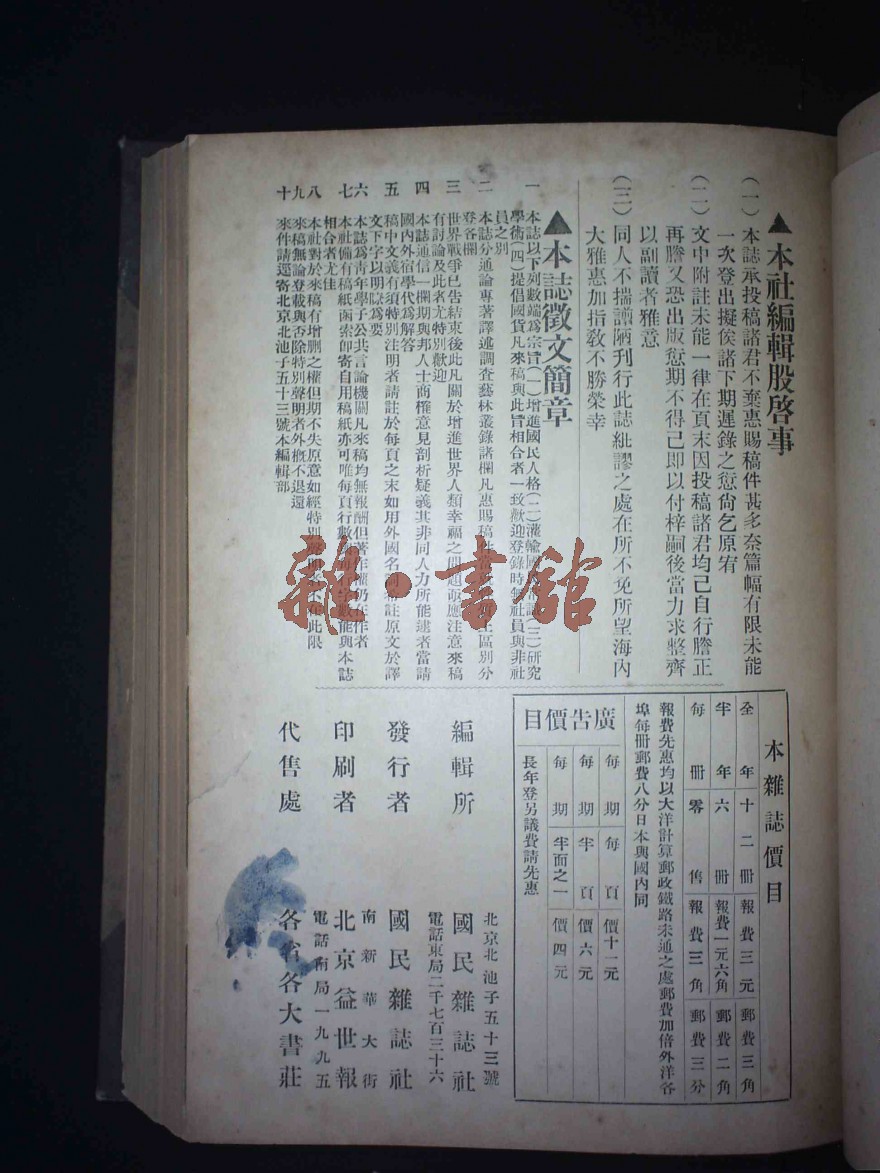 ▲本社編輯股啓事
(一)本誌承投稿諸君不棄惠賜稿件甚多奈篇幅有限未能
一次登出擬俟諸下期遲錄之愆尙乞原宥
(二)文中附註未能一律在頁末因投稿諸君均已自行謄正
再謄又恐出版愆期不得已即以付梓嗣後當力求整齊
以副讀者雅意
(三)同人不揣譾陋刋行此誌紕謬之處在所不免所望海內
大雅惠加指敎不勝榮幸
▲本誌徵文簡章
一 本誌以下列數端爲宗旨(一)增進國民人格(二)灌輸國(三)研究
學術(四)提倡國貨凡來稿與此旨相合者一致歡迎登錄時無社員與非社
員之別
二 本誌分通論專著譯述調查藝林叢錄諸欄凡惠賜稿件區別分
登各欄
三 世界戰爭已告結束後此凡關於增進世界人類幸福之問題亟應注意來稿
有討論及此者尤特別歡迎
四 本誌通信一欄期與邦人士商榷意見剖析疑義其非同人力所能逮者當請
國內外宿學代爲解答
五 稿中文義有須特別注明者請註於每頁之末如用外國名詞請註原文於譯
文下字以明晰爲要
六 本誌爲靑年學子公共言論機關凡來稿均無報酬但著作權仍在作者
七 本社備有稿紙函索卽寄自用稿紙亦可唯每頁行數每行字數能與本誌
相合者尤佳
八 本社對於來稿有增刪之權但期不失原意如經特別聲明者不在此限
九 來稿無論登載與否除特別聲明者外槪不退還
十 來件請逕寄北京北池子五十三號本編輯部
雜·書館
本雜誌價目
全年十二册 報費三元 郵費三角
半年六册 報費一元六角 郵費二角
每册零售 報費三角 郵費三分
報費先惠均以大洋計算郵政鐵路未通之處郵費加倍外洋各
埠每册郵費八分日本與國內同
廣告價目
每期每頁 價十一元
每期半頁 價六元
每期半面之一 價四元
長年登另議費請先惠
編輯所 北京北池子五十三號
國民雜誌社
電話東局二千七百三十六
發行者 國民雜誌社
南新華大街
印刷者 北京益世報
電話南局一九九五
代售處 各省各大書莊